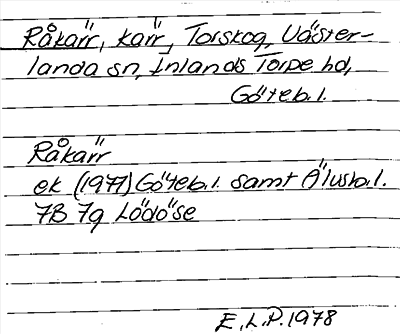 Råkärr, kärr, Torskog, Väster-
landa sn, Inlands Torpe hd,
Göteb. l.
Råkärr
ek (1977) Göteb. l. samt Älvsb. l.
7B 7g Lödöse
E.L.P. 1978